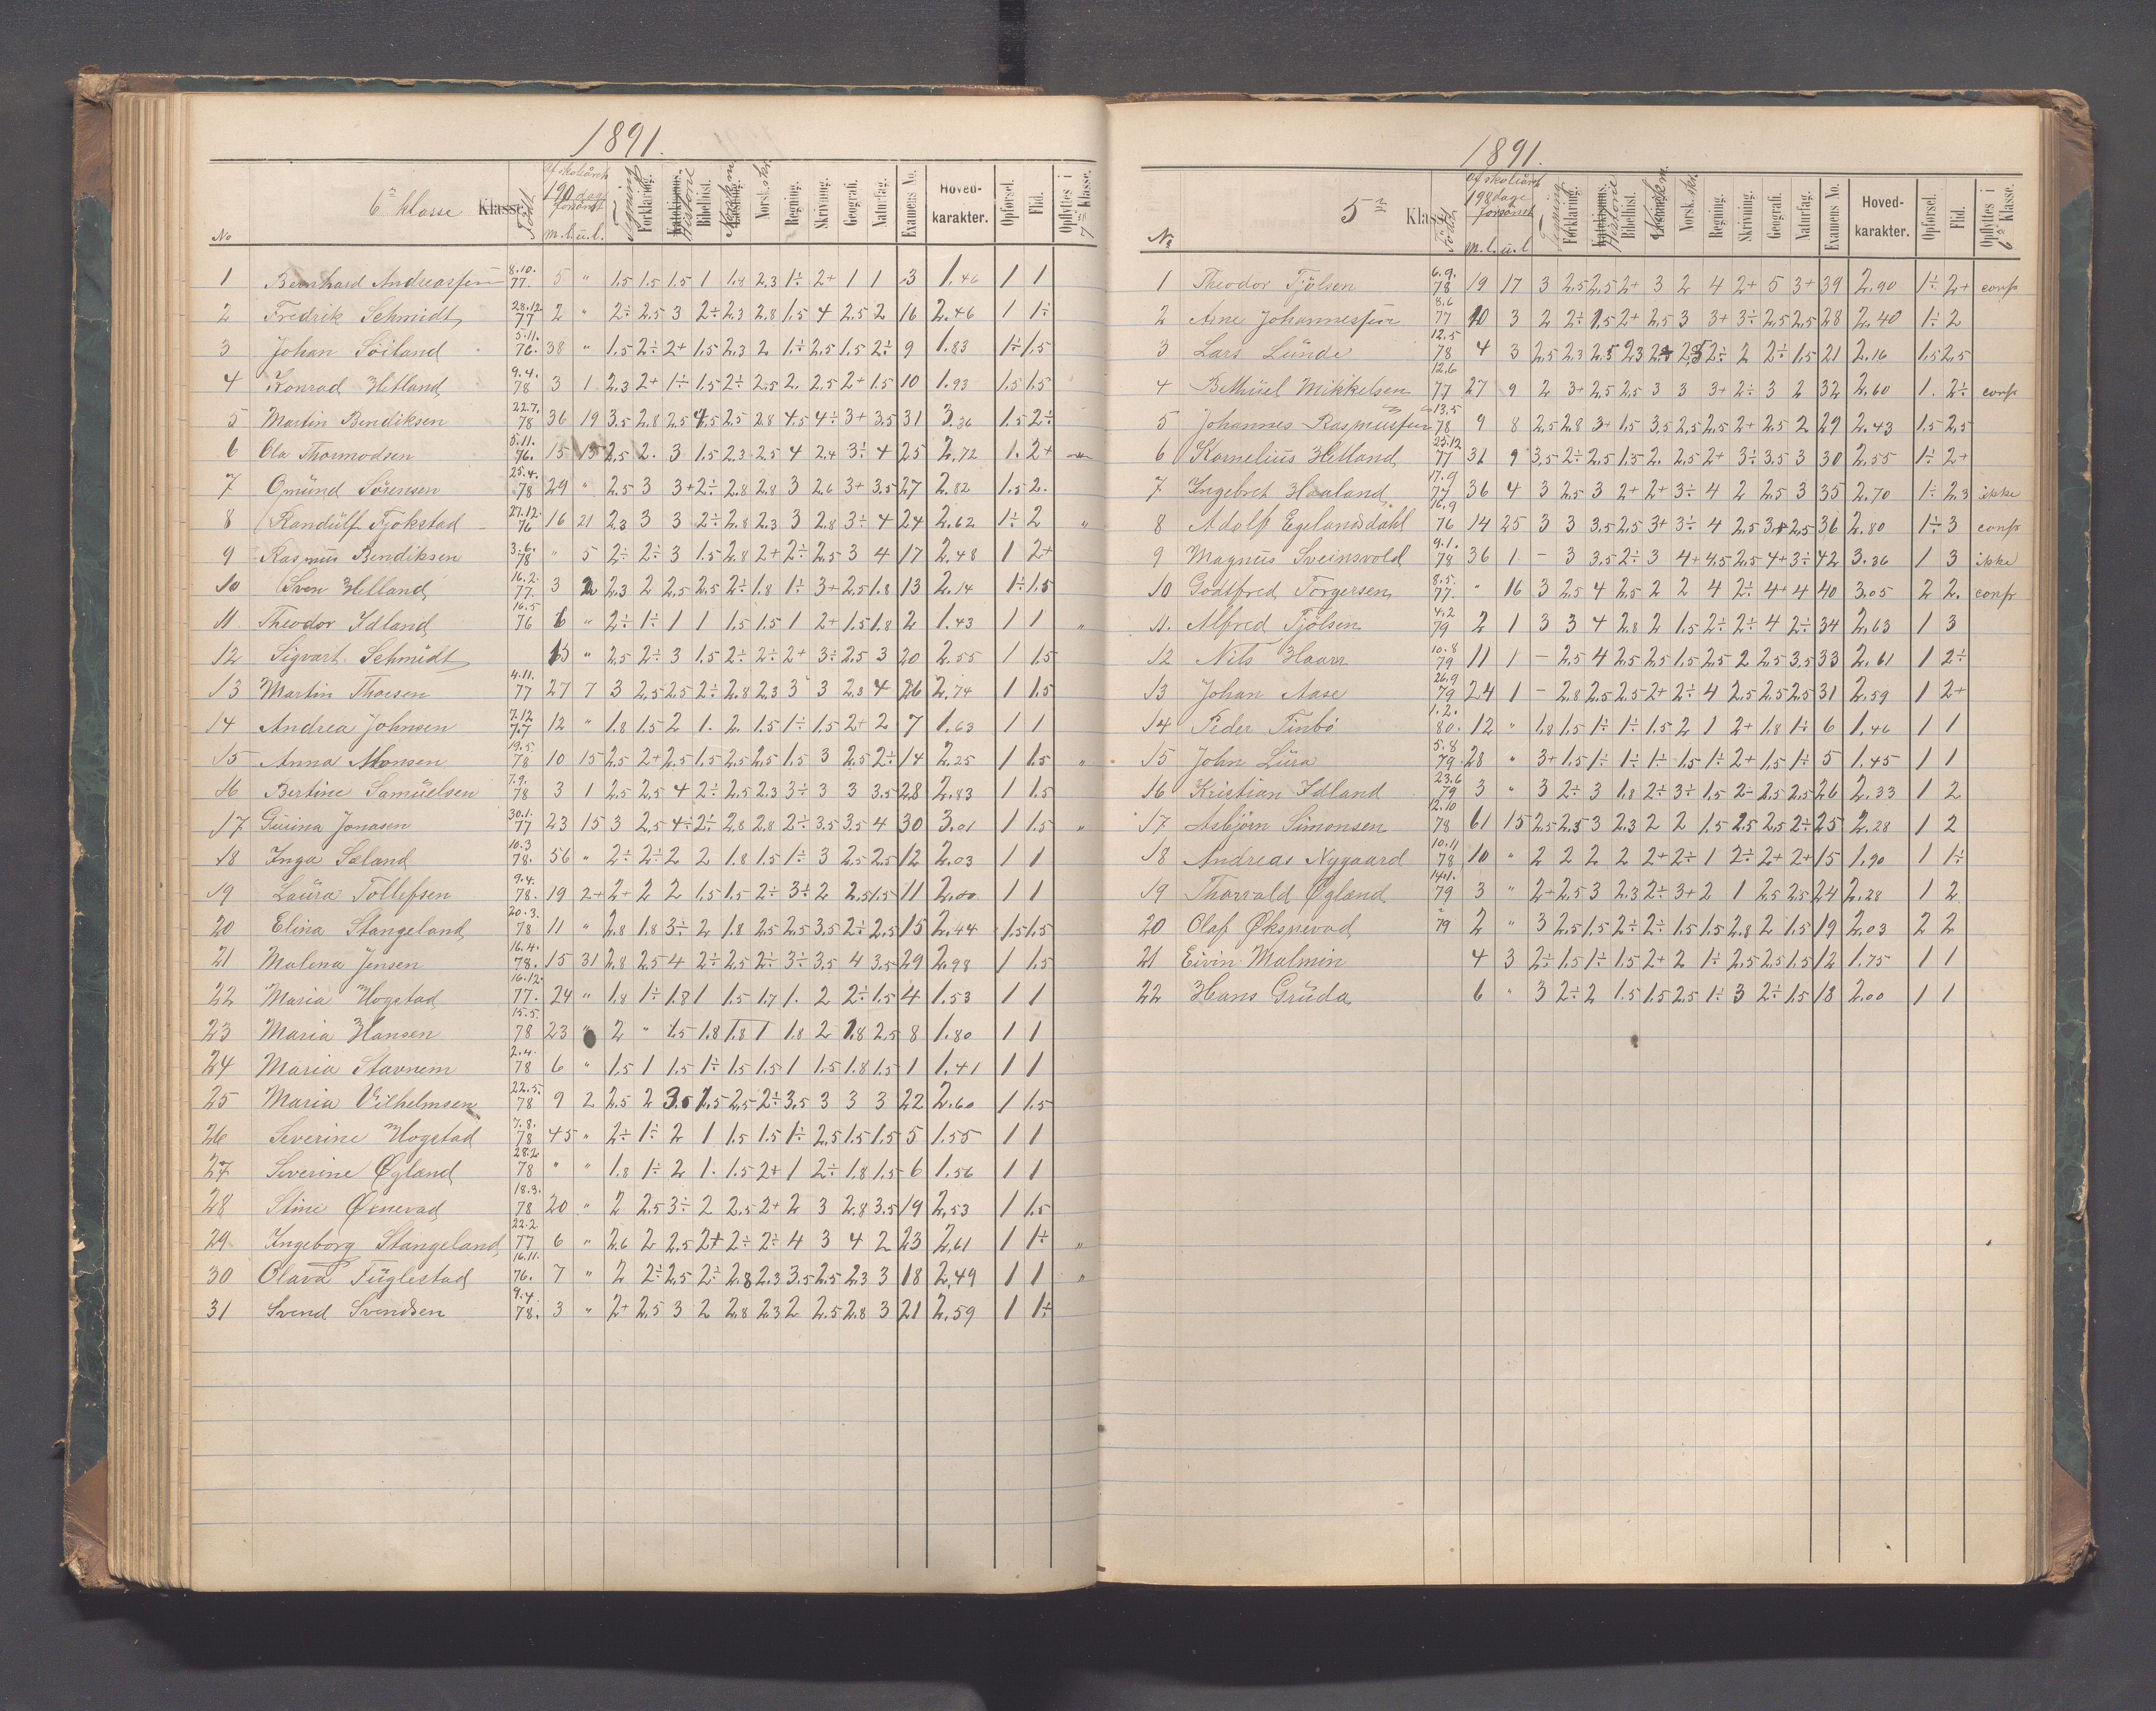 1891.
6te klasse Klasse.
No Født af skoleåret 190 dage forsømt m.l. u.l. Tegning Forklaring. Historie Bibelhist. Norsk m. Norsk skr. Regning. Skrivning. Geografi. Naturfag. Examens No. Hoved-karakter. Opførsel. Flid. Opflyttes i 7de Klasse.
1 Bernhard Andreassen 8.10. 77. 5 " 1.5 1.5 1.5 1 1.8 2.3 1÷ 2+ 1 1 3 1.46 1 1
2 Fredrik Schmidt 28.12 77 2 " 2÷ 2.5 3 2÷ 2.3 2.8 1.5 4 2.5 2 16 2.46 1 1÷
3 Johan Söiland 5.11. 76. 38 " 1.5 2÷ 2+ 1.5 2.3 2 1÷ 2.5 1.5 2÷ 9 1.83 1÷ 1.5
4 Konrad Hetland 9.4. 78 3 1 2.3 2+ 1÷ 1.5 2÷ 2.5 2. 2.5 2+ 1.5 10 1.93 1.5 1.5
5 Martin Bendiksen 22.7. 78 36 19 3.5 2.8 2.5 4.5 2.5 2.8 4.5 4÷ 3+ 3.5 31 3.36 1.5 2÷
6 Ola Thormodsen 5.11. 76. 15 15 2.5 2. 3 1.5 2.3 2.5 4 2.4 3÷ 4 25 2.72 1. 2+
7 Omünd Sörensen 25.4. 78 29 " 2.5 3 3+ 2÷ 2.8 2.8 3 2.6 3+ 3.5 27 2.82 1.5 2.
8 Randülf Tjøkstad 27.12. 76 16 21 2.3 3 3 2÷ 2.8 2.3 3 2.8 3÷ 4 24 2.62 1÷ 2 "
9 Rasmus Bendiksen 3.6. 78 " 5 2÷ 2÷ 3 1.5 2.8 2+ 2÷ 2.5 3 4 17 2.48 1 2+
10 Sven Helland 16.2. 77. 3 2 2.3 2 2.5 2.5 2÷ 1.8 1÷ 3+ 2.5 1.8 13 2.14 1÷ 1.5
11 Theodor Idland 16.5 76 6 " 2÷ 1÷ 1 1 1.5 1.5 1 2+ 1.5 1.8 2 1.43 1 1 "
12 Sigvart Schmidt 13 " 2.5 2÷ 3 1.5 2÷ 2÷ 2+ 3÷ 2.5 3 20 2.55 1 1.5
13 Martin Thorsen 4.11. 77 27 7 3 2.5 2.5 2÷ 2.8 2.3 3 3 2.3 4 26 2.74 1 1.5
14 Andrea Johnsen 7.12 77 12 " 1.8 1.5 2 1. 2. 1.5 1÷ 1.5 2+ 2 7 1.63 1 1
15 Anna Monsen 19.5. 78 10 15 2.5 2+ 2.5 1.5 2.5 2.5 1.5 3 2.5 2÷ 14 2.25 1 1.5 "
16 Bertine Samüelsen 7.9. 78 3 1 2.5 2.5 4 2÷ 2.5 2.3 3÷ 3 3 3.5 28 2.83 1 1.5
17 Gurina Jonasen 30.1. 77 23 15 3 2.5 4÷ 2÷ 2.8 2.8 2÷ 3.5 3.5 4 30 3.01 1 1.5 "
18 Inga Søland 10.3 78. 56 " 2÷ 2÷ 2 2 1.8 1.5 1÷ 3 2.5 2.5 12 2.03 1 1
19 Laüra Tollefsen 9.4. 78. 19 2+ 2+ 2 2 1.5 1.5 2÷ 3÷ 2 2.5 1.5 11 2.00 1 1
20 Elina Stangeland 20.3. 78 11 " 2.8 1.8 3÷ 2 1.8 2.5 2.5 3.5 2÷ 2.5 15 2.44 1.5 1.5
21 Malena Jensen 16.4. 78. 15 31 2.8 2.5 4 2÷ 2.5 2÷ 3÷ 3.5 4 3.5 29 2.98 1 1.5
22 Maria Hogstad 16.12. 77. 24 " 1.8 1÷ 1.8 1 1.5 1.7 1. 2 2÷ 1.5 4 1.53 1 1
23 Maria Hansen 15.5. 78 23 " 2 " 1.5 1.8 1.8 1 1.8 2 1.8 2.5 8 1.80 1 1
24 Maria Stavnem 2.4. 78 6 " 1.5 1 1.5 1÷ 1.5 1.5 1 1.5 1.8 1.5 1 1.41 1 1
25 Maria Vilhelmsen 22.5. 78 9 2 2.5 2 3.5 1.5 2.5 2÷ 3.5 3 3 3 22 2.60 1 1.5
26 Severine Hogstad 7.8. 78 45 " 2÷ 1÷ 2 1 1.5 1.5 1÷ 2.5 1.5 1.5 5 1.55 1 1
27 Severine Øgland 28.2 78 " " 1.8 1÷ 2 1. 1.5 2+ 1 2÷ 1.8 1.5 6 1.56 1 1
28 Stine Øxnevad 18.3. 78 20 " 2 2.5 3÷ 2 2.5 2+ 2 3 2.8 3.5 19 2.53 1 1.5
29 Ingeborg Stangeland 22.2 77 6 " 2.6 2 2.5 2+ 2÷ 2÷ 4 3 4 2 23 2.61 1 1÷ "
30 Olava Füglestad 16.11. 76. 7 " 2 2÷ 2.5 2÷ 2.8 2.3 3.5 2.5 2.3 3 18 2.49 1 1 "
31 Svend Svendsen 9.4. 78. 3 " 2+ 2.5 3 2 2.8 2.3 2 2.5 2.8 3 21 2.59 1 1÷
1891.
5te Klasse.
No Født af skoleåret 198 dage forsømt m.l. u.l Tegning Forklaring. Historie Bibelhist. Norsk m. Norsk skr. Regning. Skrivning. Geografi. Naturfag. Examens No. Hoved-karakter. Opførsel. Flid. Opflyttes i 6te Klasse.
1 Theodor Tjölsen 6.9. 78 19 17 3 2.5 2.5 2+ 3 2 4 2+ 5 3+ 39 2.90 1÷ 2+ conf
2 Arne Johannessen 8.6 77 10 3 2 2÷ 1.5 2+ 2.5 3 3+ 3÷ 2.5 2.5 28 2.40 1÷ 2
3 Lars Lünde 12.5 78 4 3 2.5 2.3 2.5 2.3 2.5 2÷ 2 2÷ 1.5 21 2.16 1.5 2.5
4 Bethüel Mikkelsen 12.6 77 27 9 2 3+ 2.5 2.5 3 3 3+ 2÷ 3 2 32 2.60 1. 2÷ conf
5 Johannes Rasmüssen 13.5 78 9 8 2.5 2.8 3+ 1.5 3.5 2.5 2.5 2+ 2.5 2 29 2.43 1.5 2.5
6 Kornelius Helland 25.12 77 31 9 3.5 2÷ 2.5 1.5 2. 2.5 2+ 3÷ 3.5 3 30 2.55 1÷ 2+
7 Ingebret Haaland 17.9 77 36 4 3 2.5 3 2+ 2+ 3÷ 4 2 2.5 3 35 2.70 1÷ 2.3 ikke
8 Adolf Egelandsdahl 16.9 76 14 25 3 3 3.5 2.5 3+ 3÷ 4 2.5 3+ 2.5 36 2.80 1÷ 3 conf
9 Magnüs Sveinsvold 9.1. 78 36 1 - 3 3.5 2÷ 3 4+ 4.5 2.5 4+ 3÷ 42 3.36 1 3 ikke
10 Godtfred Torgersen 8.5. 77. " 16 3 2.5 4 2.5 2 2 4 2÷ 4+ 4 40 3.05 2 2. conf
11. Alfred Tjölsen 4.2 79 2 1 3 3 4 2.8 2 1.5 2÷ 2÷ 4 2÷ 34 2.63 1 3
12 Nils Haarr 10.8 79 11 1 - 2.5 4 2.5 2.5 1.5 2.5 2 2.5 3.5 33 2.61 1 2÷
13 Johan Aase 26.9 79 24 1 - 2.8 2.5 2.5 2+ 2÷ 4 2.5 2.5 2.5 31 2.59 1 2+
14 Peder Tinbö 1.2. 80. 12 " 1.8 1.5 1÷ 1÷ 1.5 2 1 2+ 1.8 1÷ 6 1.46 1 1
15 John Lüra 5.8 79 28 " 3+ 1.5 1÷ 1÷ 1÷ 1.5 1÷ 2+ 1.5 1÷ 5 1.45 1 1
16 Kristian Idland 23.6 79 3 " 3 2÷ 3 1.8 2÷ 3÷ 1.5 2÷ 2.5 2.5 26 2.33 1 2
17 Asbjörn Simonsen 12.10 78 61 15 2.5 2.5 3 2.3 2 2 1.5 2.5 2.5 2÷ 25 2.28 1 2
18 Andreas Nygaard 10.11 78 10 " 2 2 2 2 2+ 2÷ 1 2÷ 2+ 2+ 15 1.90 1 1÷
19 Thorvald Øgland 14.1. 79 3 " 2+ 2.5 3 2.3 2÷ 3+ 2 1 2.5 2.5 24 2.28 1 2
20 Olaf Øksnevad 79 2 " 3 2.5 1.5 2÷ 2÷ 1.5 1.5 2.8 2 1.5 19 2.03 2 2
21 Eivin Malmin 4 3 2÷ 1.5 1÷ 1.5 2+ 2 1÷ 2.5 2.5 1.5 12 1.75 1 1
22 Hans Grüda 6 " 3 2÷ 2 1.5 1.5 2.5 1÷ 3 2÷ 1.5 18 2.00 1 1